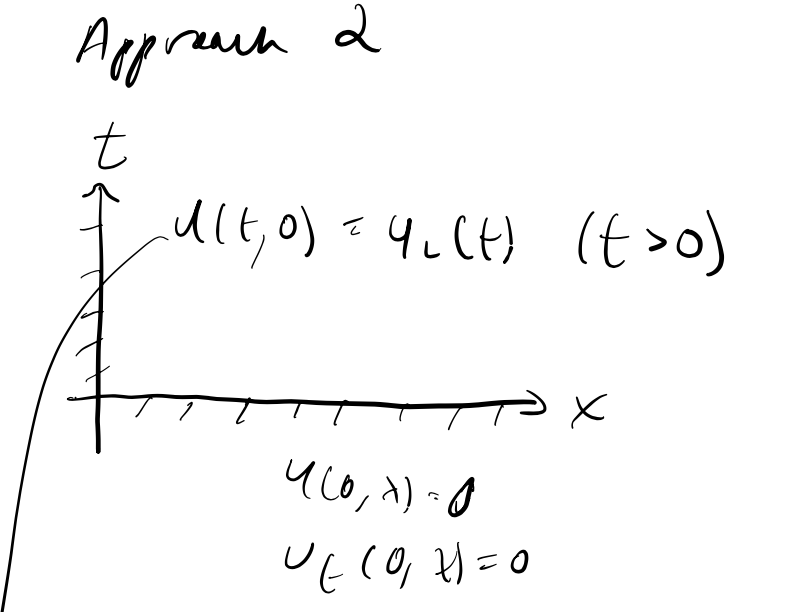 Approach 2
t
u(t,0) = u_L(t) (t>0)
x
u(0,x)=0
u_t(0,x)=0